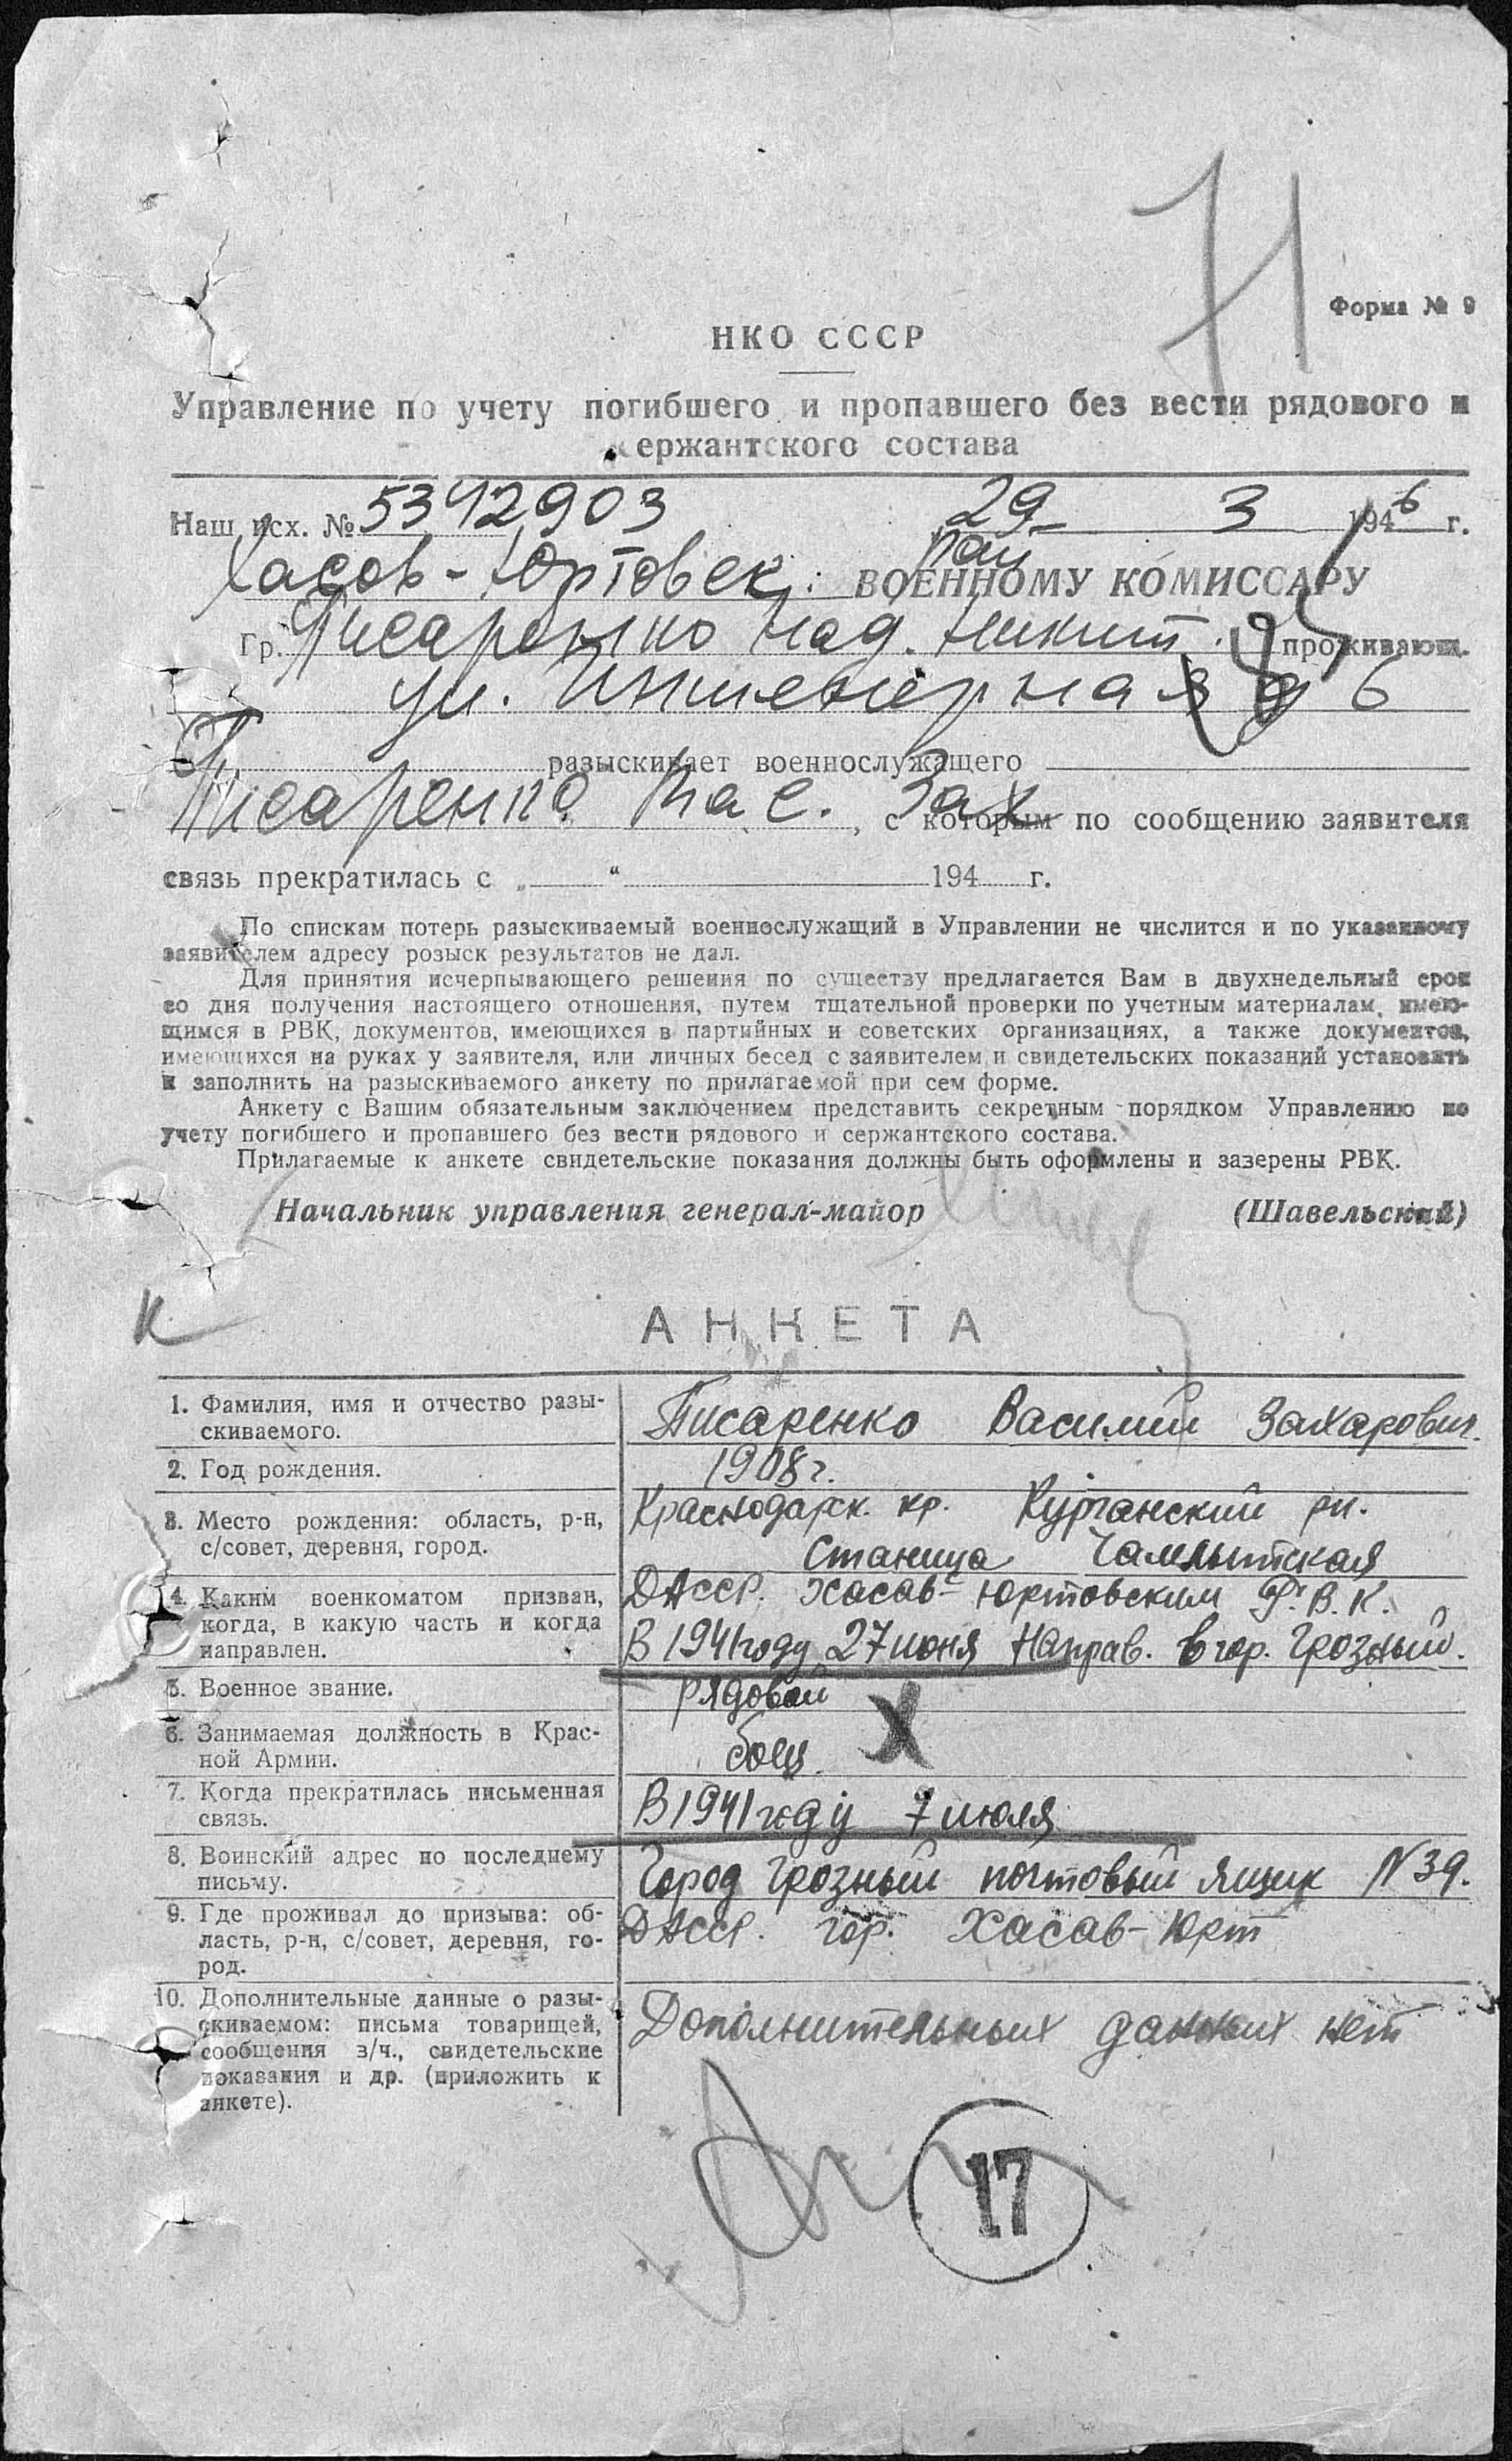 71
Форма № 9
НКО СССР
Управление по учету погибшего и пропавшего без вести рядового и
сержантского состава
Наш исх. № 5342903 29 3 1946 г.
Хасав-Юртовск. рай ВОЕННОМУ КОМИССАРУ
Гр. Писаренко Над. Никит. проживающ.
ул. Инженерная д 6
разыскивает военнослужащего
Писаренко Вас. Зах, с которым по сообщению заявителя
связь прекратилась с „ “ 194 г.
По спискам потерь разыскиваемый военнослужащий в Управлении не числится и по указанному
заявителем адресу розыск результатов не дал.
Для принятия исчерпывающего решения по существу предлагается Вам в двухнедельный срок
со дня получения настоящего отношения, путем тщательной проверки по учетным материалам, имею-
щимся в РВК, документов, имеющихся в партийных и советских организациях, а также документов,
имеющихся на руках у заявителя, или личных бесед с заявителем и свидетельских показаний установить
и заполнить на разыскиваемого анкету по прилагаемой при сем форме.
Анкету с Вашим обязательным заключением представить секретным порядком Управлению по
учету погибшего и пропавшего без вести рядового и сержантского состава.
Прилагаемые к анкете свидетельские показания должны быть оформлены и заверены РВК.
Начальник управления генерал-майор (Шавельский)
К
АНКЕТА
1. Фамилия, имя и отчество разы-
скиваемого.
Писаренко Василий Захарович.
2. Год рождения.
1908 г.
3. Место рождения: область, р-н,
с/совет, деревня, город.
Краснодарск. кр. Курганский рн.
Станица Чамлытская
4. Каким военкоматом призван,
когда, в какую часть и когда
направлен.
ДАССР. Хасав-Юртовским Р.В.К.
В 1941 году 27 июня Направ. в гор. Грозный.
5. Военное звание.
рядовой
6. Занимаемая должность в Крас-
ной Армии.
боец.
7. Когда прекратилась письменная
связь.
В 1941 году 7 июля
8. Воинский адрес по последнему
письму.
Город Грозный почтовый ящик N 39.
9. Где проживал до призыва: об-
ласть, р-н, с/совет, деревня, го-
род.
ДАССР. гор. Хасав-Юрт
10. Дополнительные данные о разы-
скиваемом: письма товарищей,
сообщения в/ч., свидетельские
показания и др. (приложить к
анкете).
Дополнительных данных нет
17